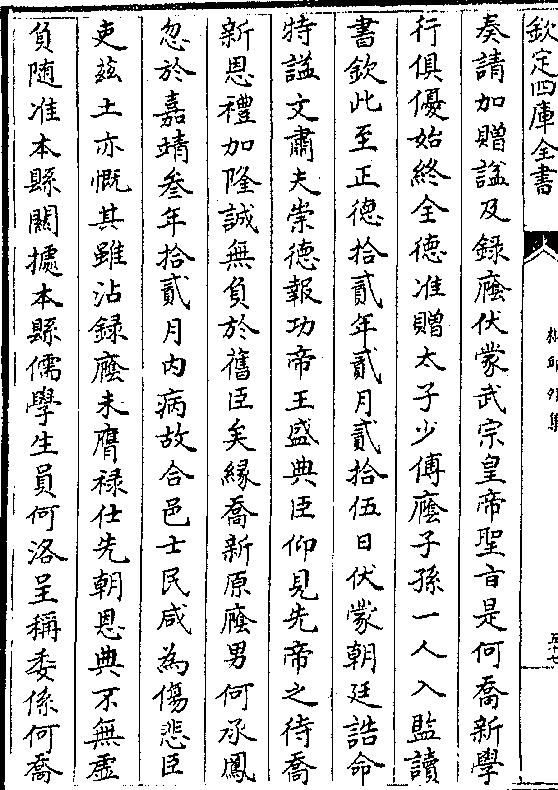 欽定四庫全書
椒邱外集
奏請加贈諡及録廕伏蒙武宗皇帝聖旨是何喬新學
行俱優始終全德准贈太子少傅廕子孫一人入監讀
書欽此至正德拾貳年貳月貳拾伍日伏蒙朝廷誥命
特諡文肅夫崇德報功帝王盛典臣仰見先帝之待喬
新恩禮加隆誠無負於舊臣矣緣喬新原廕男何承鳳
忽於嘉靖叁年拾貳月内病故合邑士民咸為傷悲臣
吏兹土亦慨其雖沾録廕未膺禄仕先朝恩典不無虚
負随准本縣關據本縣儒學生員何洛呈稱委係何喬